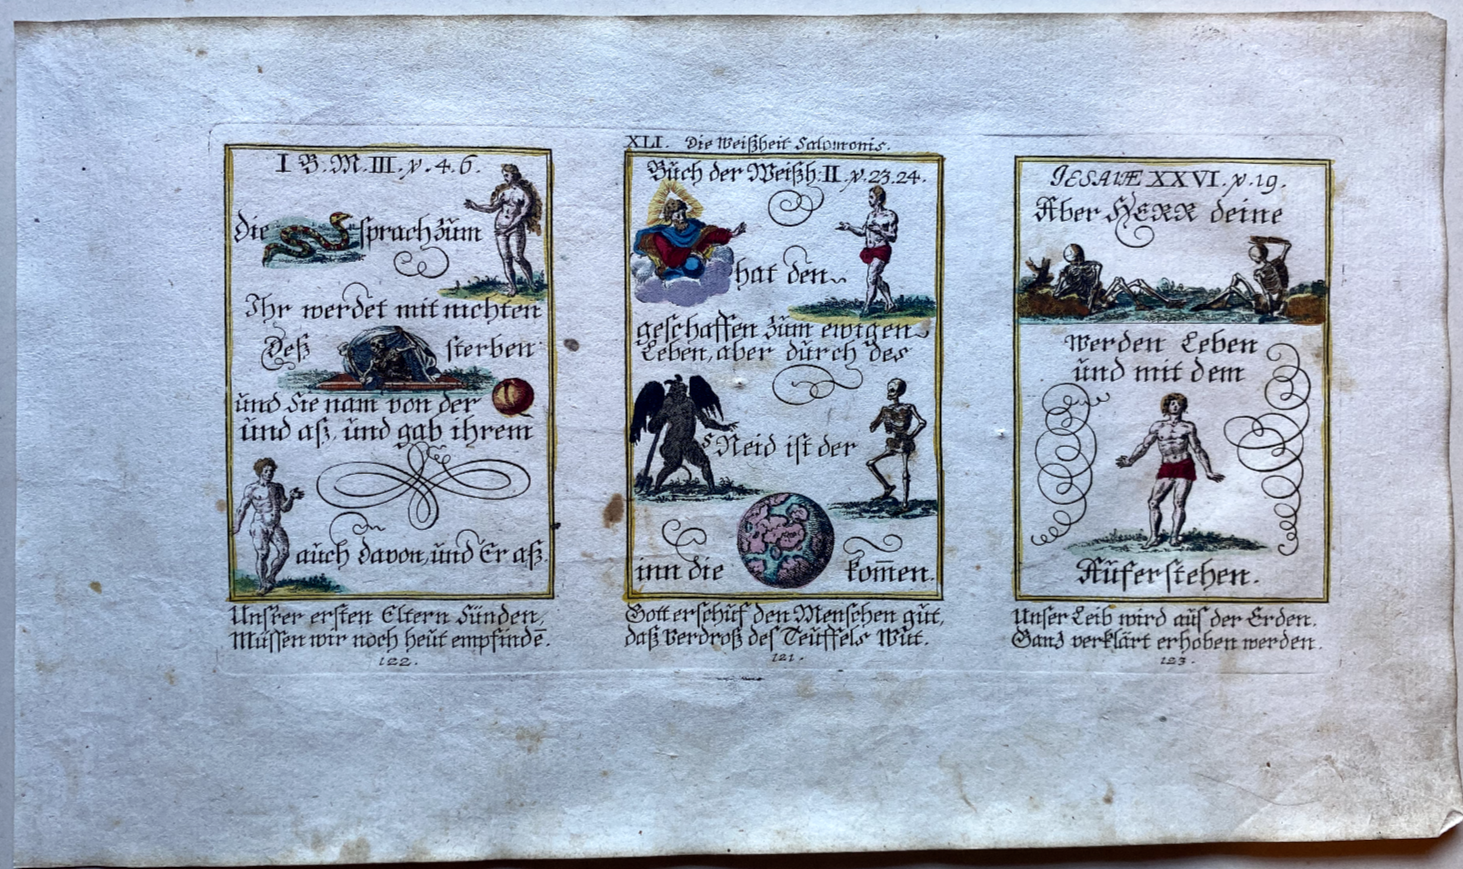 I B. M. III. v. 4. 6.
Die sprach zum
Ihr werdet mit nichten
Deß sterben
und Sie nam von der
und aß, und gab ihrem
auch davon, und Er aß.
Unsrer ersten Eltern Sünden,
Müssen wir noch heut empfindē.
122.
XLI. Die Weißheit Salomonis.
Buch der Weißh: II. v. 23. 24.
hat den
geschaffen zum ewigen
Leben, aber durch des
s Neid ist der
inn die kom̄en.
Gott erschuf den Menschen gut,
daß verdroß des Teuffels Wut.
121.
JESAIÆ XXVI. v. 19.
Aber HERR deine
werden Leben
und mit dem
Auferstehen.
Unser Leib wird aus der Erden.
Ganz verklärt erhoben werden.
123.